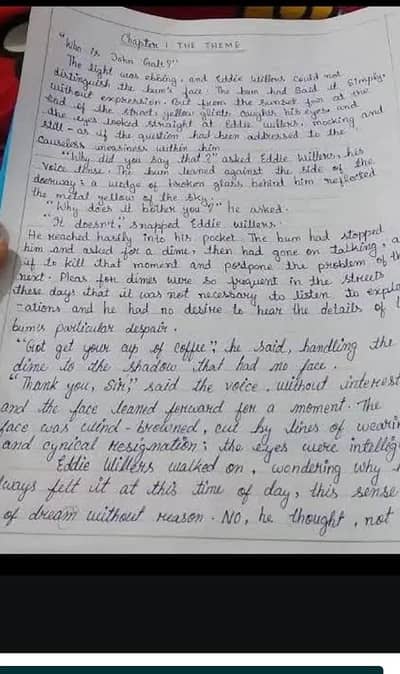 Chapter 1 THE THEME
"Who Is John Galt?"
The light was ebbing, and Eddie Willers could not
distinguish the bum's face. The bum had said it simply,
without expression. But from the sunset far at the
end of the street, yellow glints caught his eyes, and
the eyes looked straight at Eddie Willers, mocking and
still - as if the question had been addressed to the
causeless uneasiness within him
"Why did you say that?" asked Eddie Willers, his
voice tense. The bum leaned against the side of the
doorway; a wedge of broken glass behind him reflected
the metal yellow of the sky.
"Why does it bother you?" he asked.
"It doesn't," snapped Eddie Willers.
He reached hastily into his pocket. The bum had stopped
him and asked for a dime, then had gone on talking, a
if to kill that moment and postpone the problem of th
next. Pleas for dimes were so frequent in the streets
these days that it was not necessary to listen to expla
-ations and he had no desire to hear the details of
bum's particular despair.
"Got get your cup of coffee", he said, handling the
dime to the shadow that had no face.
"Thank you, Sir," said the voice, without interest
and the face leaned forward for a moment. The
face was wind-browned, cut by lines of wearin
and cynical resignation; the eyes were intellig
Eddie Willers walked on, wondering why
lways felt it at this time of day, this sense
of dream without reason. NO, he thought, not